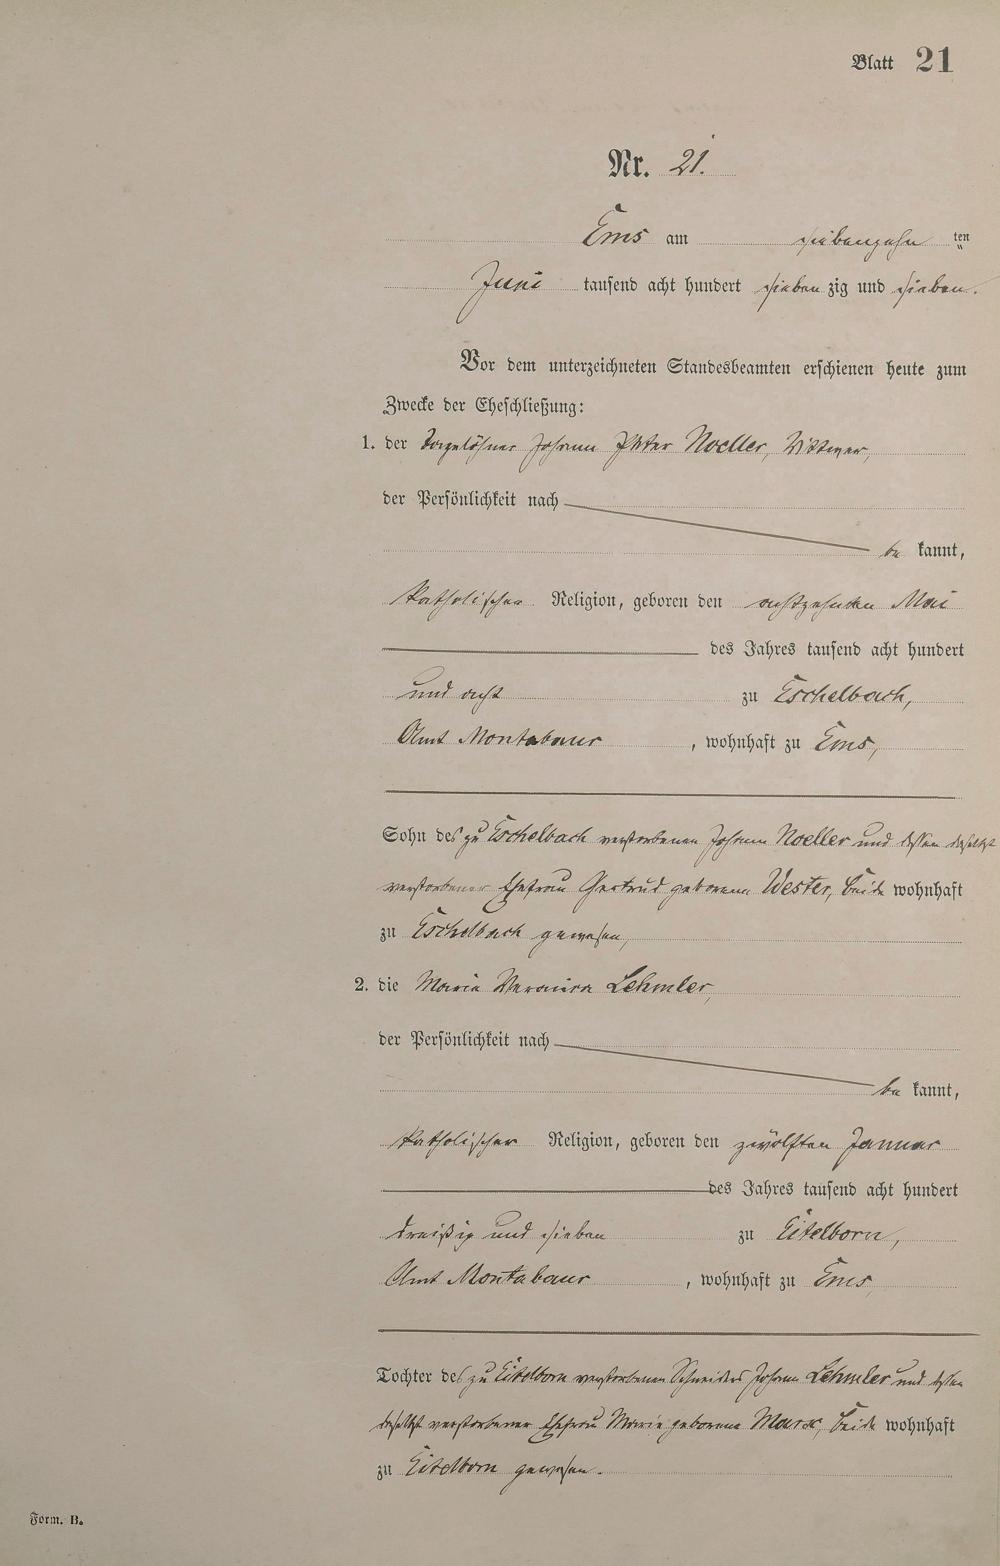 Blatt 21
Nr. 21.
Ems am siebenzehn ten
Juni tausend acht hundert siebenzig und sieben.
Vor dem unterzeichneten Standesbeamten erschienen heute zum
Zwecke der Eheschließung:
1. der Tagelöhner Johann Peter Noeller, Wittwer,
der Persönlichkeit nach
be kannt,
katholischer Religion, geboren den achtzehnten Mai
des Jahres tausend acht hundert
und acht zu Eschelbach,
Amt Montabaur, wohnhaft zu Ems,
Sohn des zu Eschelbach verstorbenen Johann Noeller und dessen daselbst
verstorbener Ehefrau Gertrud geborene Wester, beide wohnhaft
zu Eschelbach gewesen,
2. die Maria Veronica Lehmler,
der Persönlichkeit nach
be kannt,
katholischer Religion, geboren den zwölften Januar
des Jahres tausend acht hundert
dreißig und sieben zu Eitelborn,
Amt Montabaur, wohnhaft zu Ems,
Tochter des zu Eitelborn verstorbenen Schneiders Johann Lehmler und dessen
daselbst verstorbener Ehefrau Maria geborene Marx, beide wohnhaft
zu Eitelborn gewesen.
Form. B.